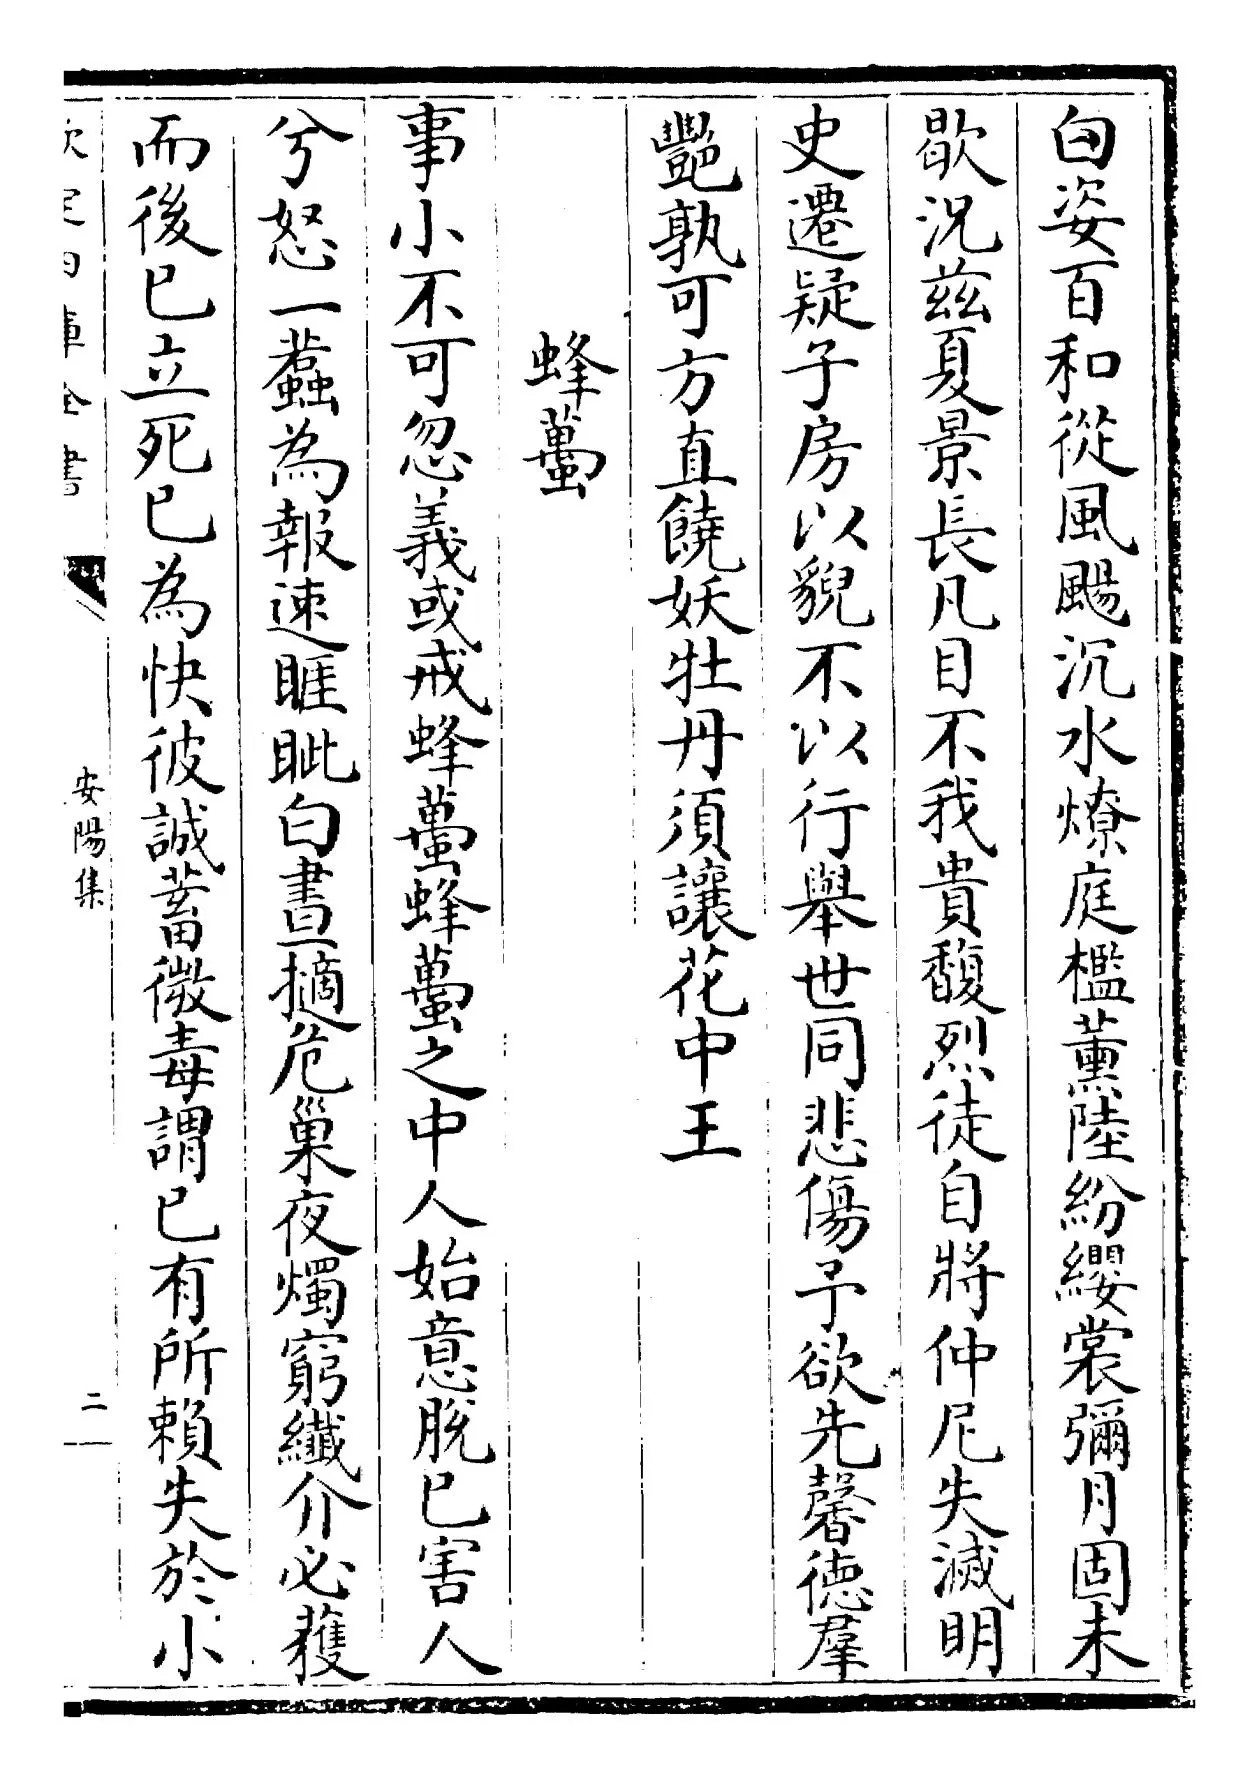 白姿百和從風颺沉水燎庭檻薰陸紛纓裳彌月固未
歇況茲夏景長凡目不我貴馥烈徒自將仲尼失滅明
史遷疑子房以貌不以行舉世同悲傷予欲先馨德羣
豔孰可方直饒妖牡丹須讓花中王
蜂蠆
事小不可忽義或戒蜂蠆蜂蠆之中人始意脫已害人
兮怒一蠚為報速睚眦白晝擿危巢夜燭窮纖介必蒦
而後已立死已為快彼誠蓄微毒謂已有所賴失於小
欽定四庫全書
安陽集
二